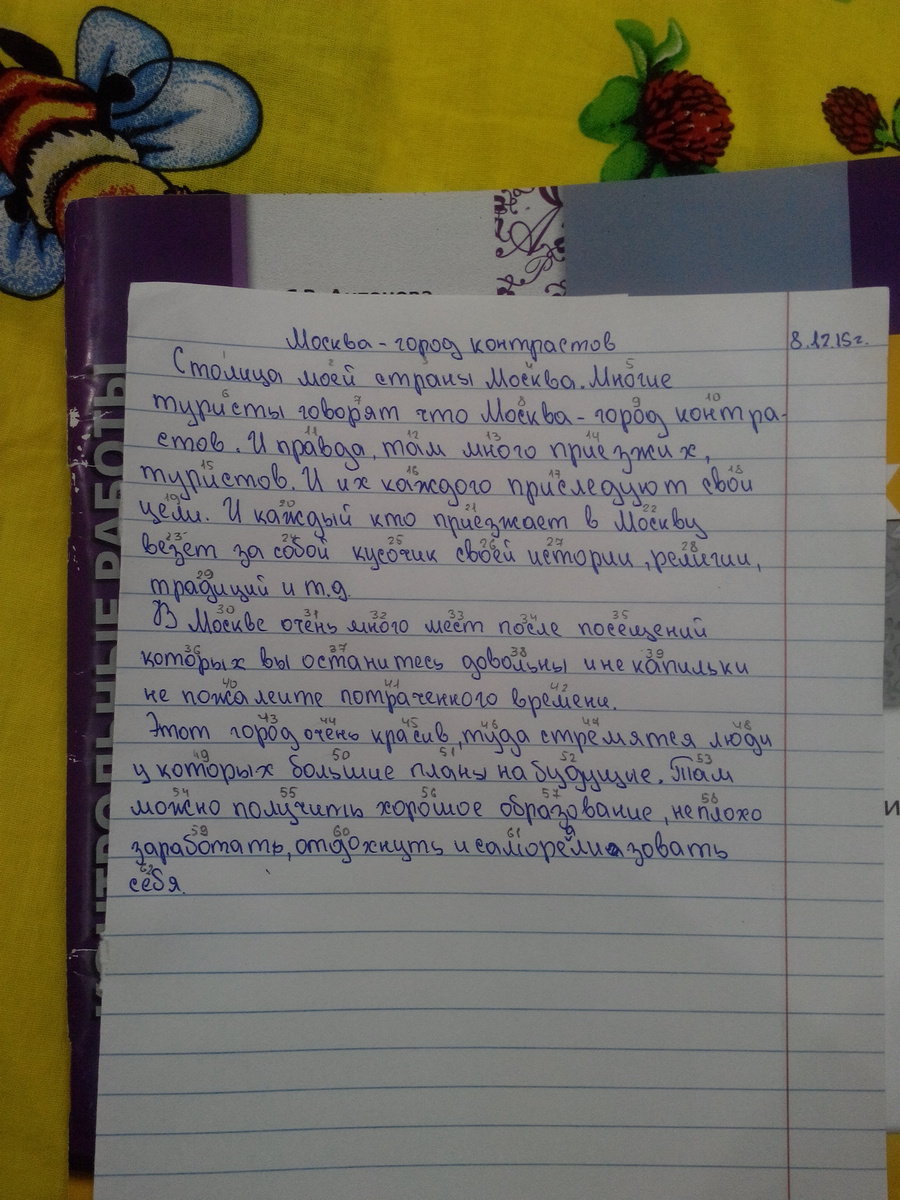 Москва - город контрастов
8.12.15г.
Столица моей страны Москва. Многие
туристы говорят что Москва - город контра-
стов. И правда, там много приезжих,
туристов. И их каждого приследуют свои
цели. И каждый кто приезжает в Москву
везет за собой кусочик своей истории, религии,
традиций и т.д.
В Москве очень много мест после посещений
которых вы останитесь довольны и не капильки
не пожалеите потраченного времени.
Этот город очень красив, туда стремятся люди
у которых большие планы на будущие. Там
можно получить хорошое образование, неплохо
заработать, отдохнуть и саморелизовать
себя.